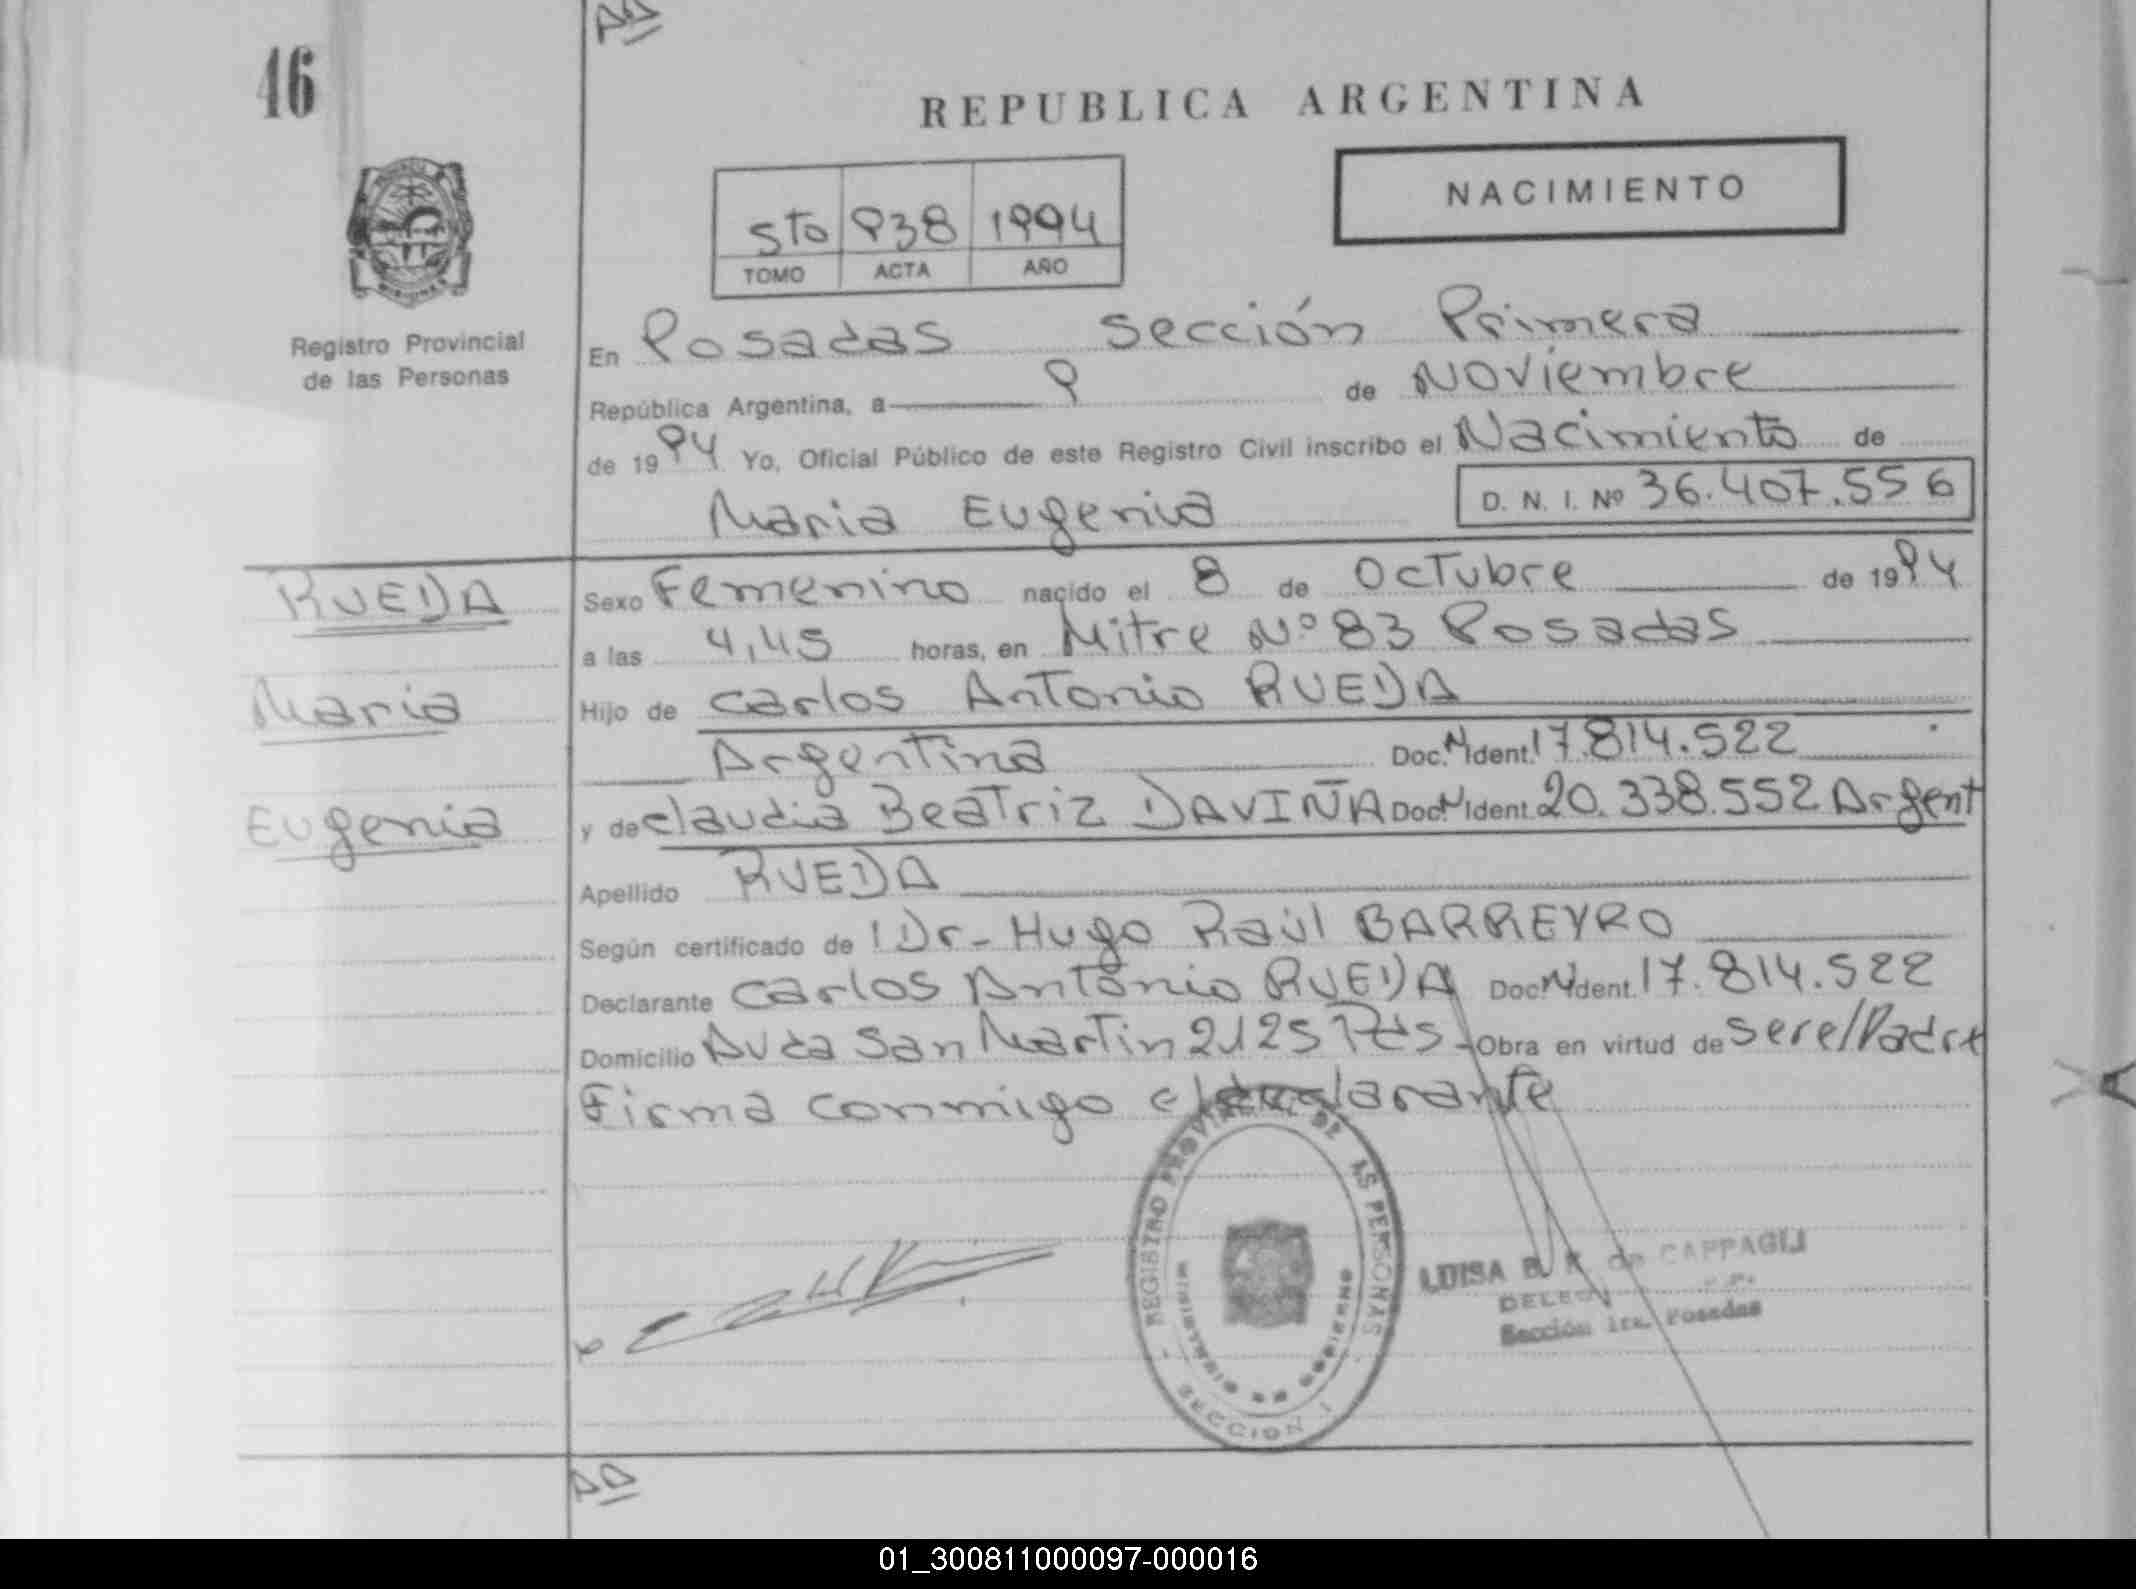 46
REPUBLICA ARGENTINA
NACIMIENTO
5to 938 1994
TOMO ACTA AÑO
Registro Provincial
de las Personas
En Posadas Sección Primera
República Argentina, a 9 de Noviembre
de 1994 Yo, Oficial Público de este Registro Civil inscribo el Nacimiento de
Maria Eugenia D. N. I. Nº 36.407.556
RUEDA
Maria
Eugenia
Sexo Femenino nacido el 8 de Octubre de 1994
a las 4,45 horas, en Mitre Nº 83 Posadas
Hijo de Carlos Antonio RUEDA
Argentina Doc. N Ident. 17.814.522
y de Claudia Beatriz DAVIÑA Doc. N Ident. 20.338.552 Argent
Apellido RUEDA
Según certificado de Dr- Hugo Raúl BARREYRO
Declarante Carlos Antonio RUEDA Doc. N Ident. 17.814.522
Domicilio Avda San Martin 2125 Pds - Obra en virtud de ser el Padre
Firma conmigo el declarante
REGISTRO PROVINCIAL DE LAS PERSONAS
MINISTERIO DE GOBIERNO
SECCION 1
LUISA B. de CAPPAGLI
Sección 1ra. Posadas
01_300811000097-000016